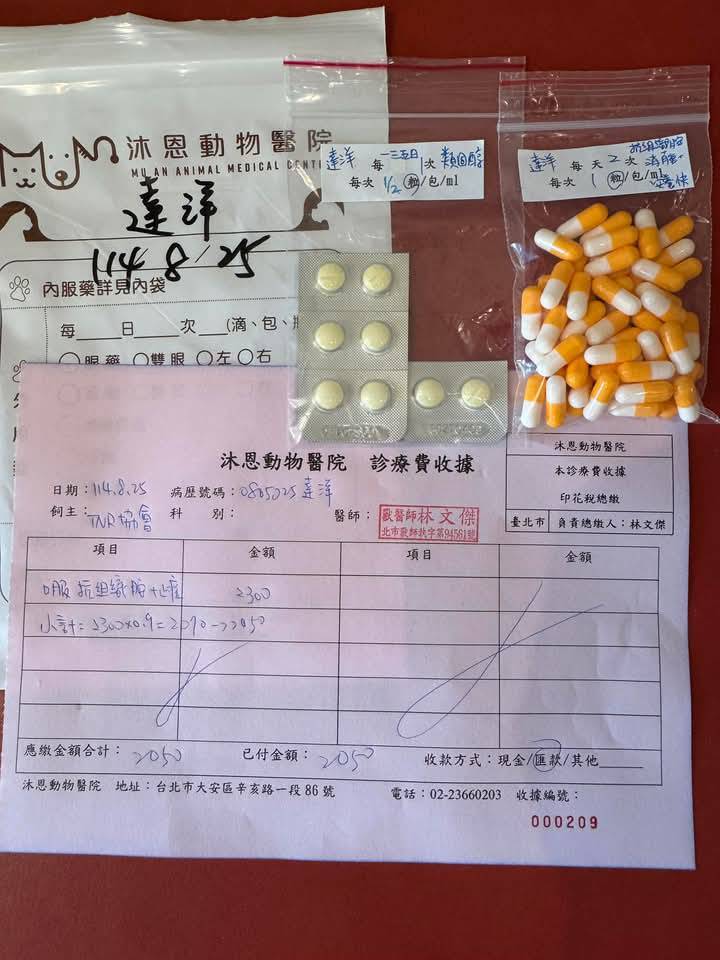 沐恩動物醫院
MU AN ANIMAL MEDICAL CENT
達洋
114.8/25
內服藥詳見內袋
每___日___次___(滴、包、
眼藥 雙眼 左 右
達洋 每 一三五日 1次 類固醇
每次 1/2 粒/包/ml
達洋 每 天 2 次 抗組織胺
每次 1 粒/包/ml
沐恩動物醫院 診療費收據
沐恩動物醫院
本診療費收據
印花稅總繳
臺北市 負責總繳人:林文傑
日期:114.8.25 病歷號碼:0805025 達洋
飼主:TNR協會 科 別: 醫師:獸醫師林文傑
北市獸師執字第94561號
項目 金額 項目 金額
口服抗組織胺 2300
小計=2300×0.9=2070→2050
應繳金額合計:2050 已付金額:2050 收款方式:現金/匯款/其他______
沐恩動物醫院 地址:台北市大安區辛亥路一段 86 號 電話:02-23660203 收據編號:
000209